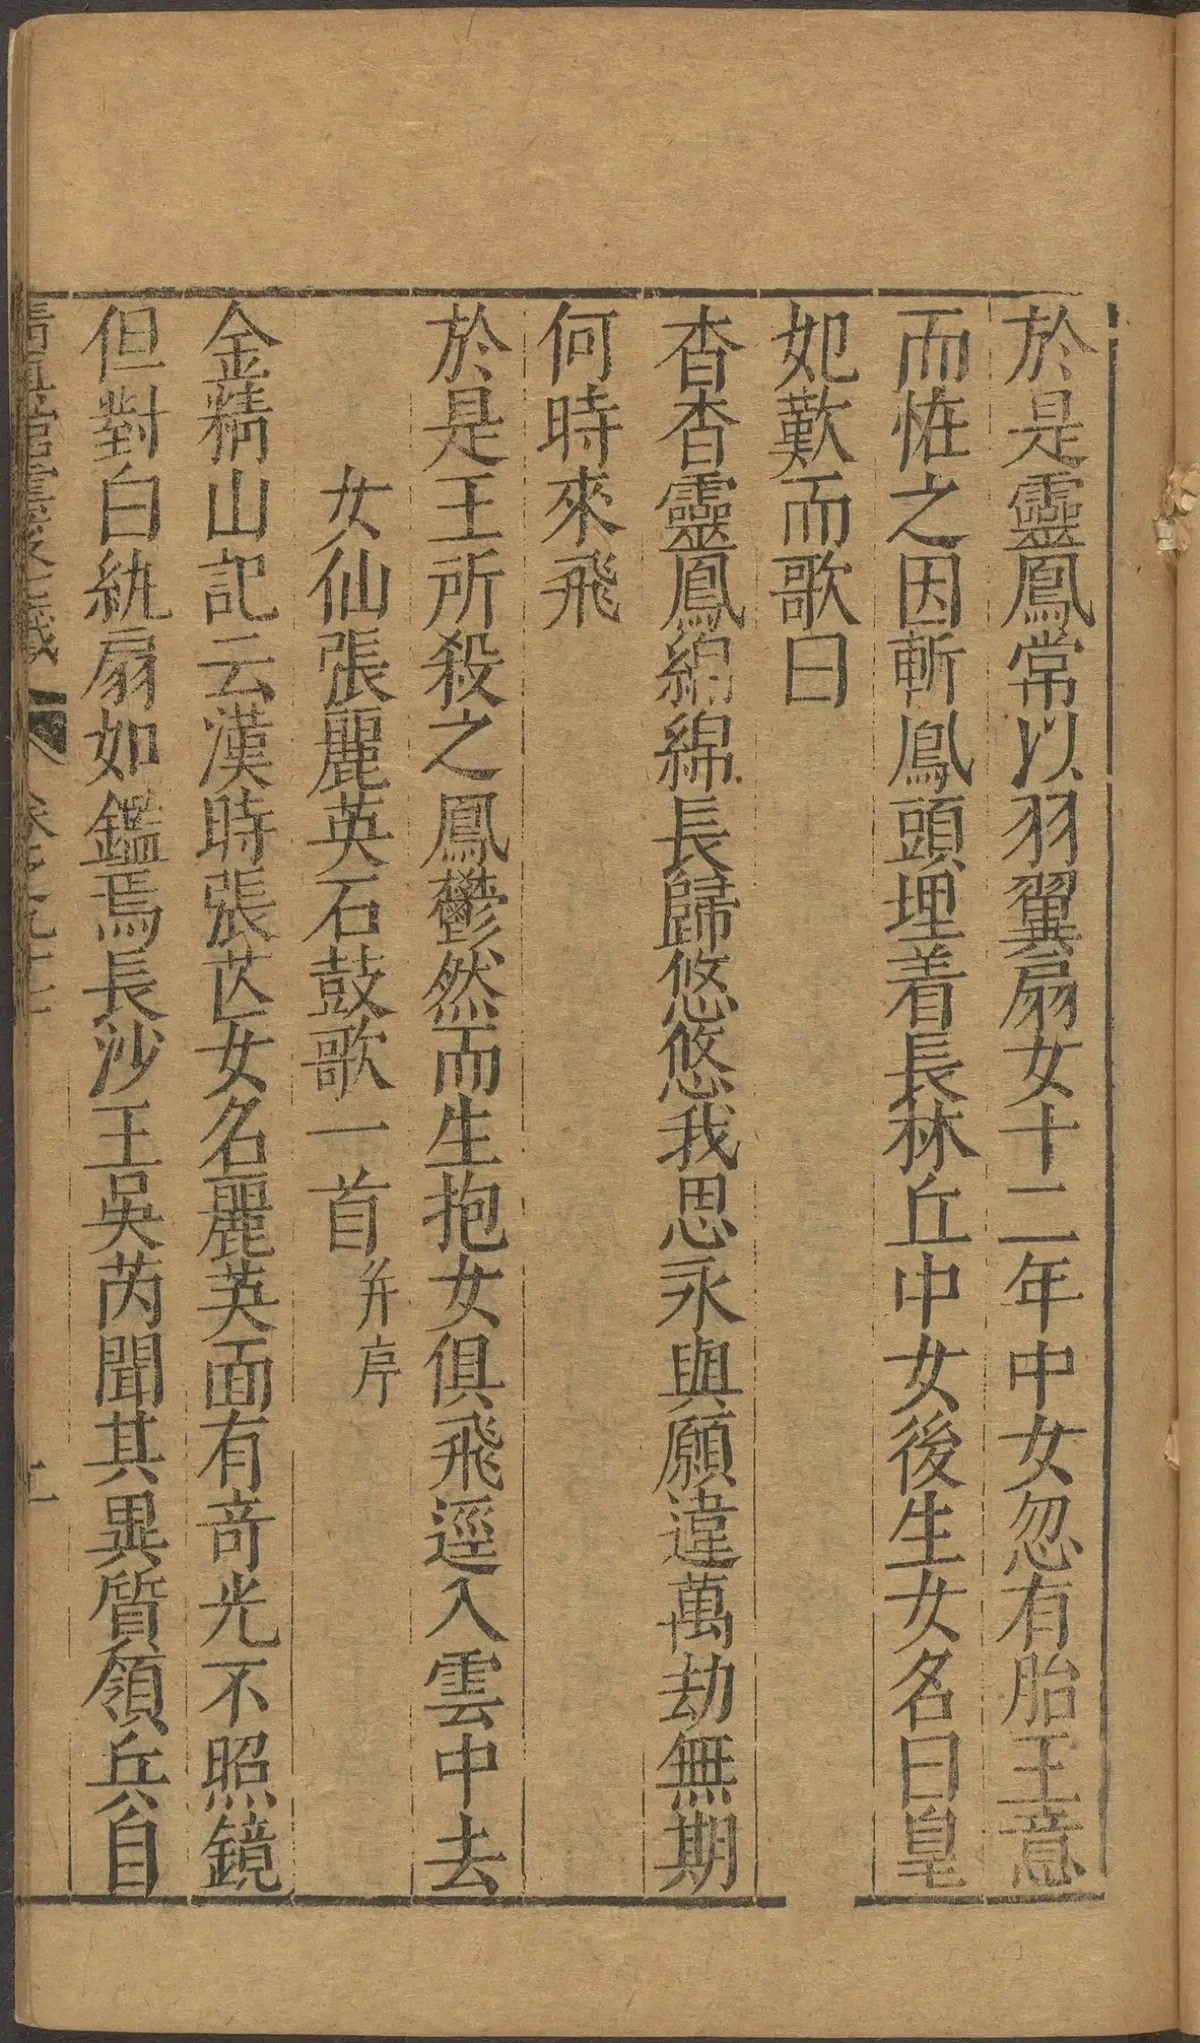 於是靈鳳常以羽翼扇女十二年中女忽有胎王意
而恠之因斬鳳頭埋着長林丘中女後生女名曰皇
妃歎而歌曰
杳杳靈鳳綿綿長歸悠悠我思永與願違萬劫無期
何時來飛
於是王所殺之鳳鬱然而生抱女俱飛逕入雲中去
女仙張麗英石鼓歌一首并序
金精山記云漢時張芒女名麗英面有奇光不照鏡
但對白紈扇如鑑焉長沙王吳芮聞其異質領兵自